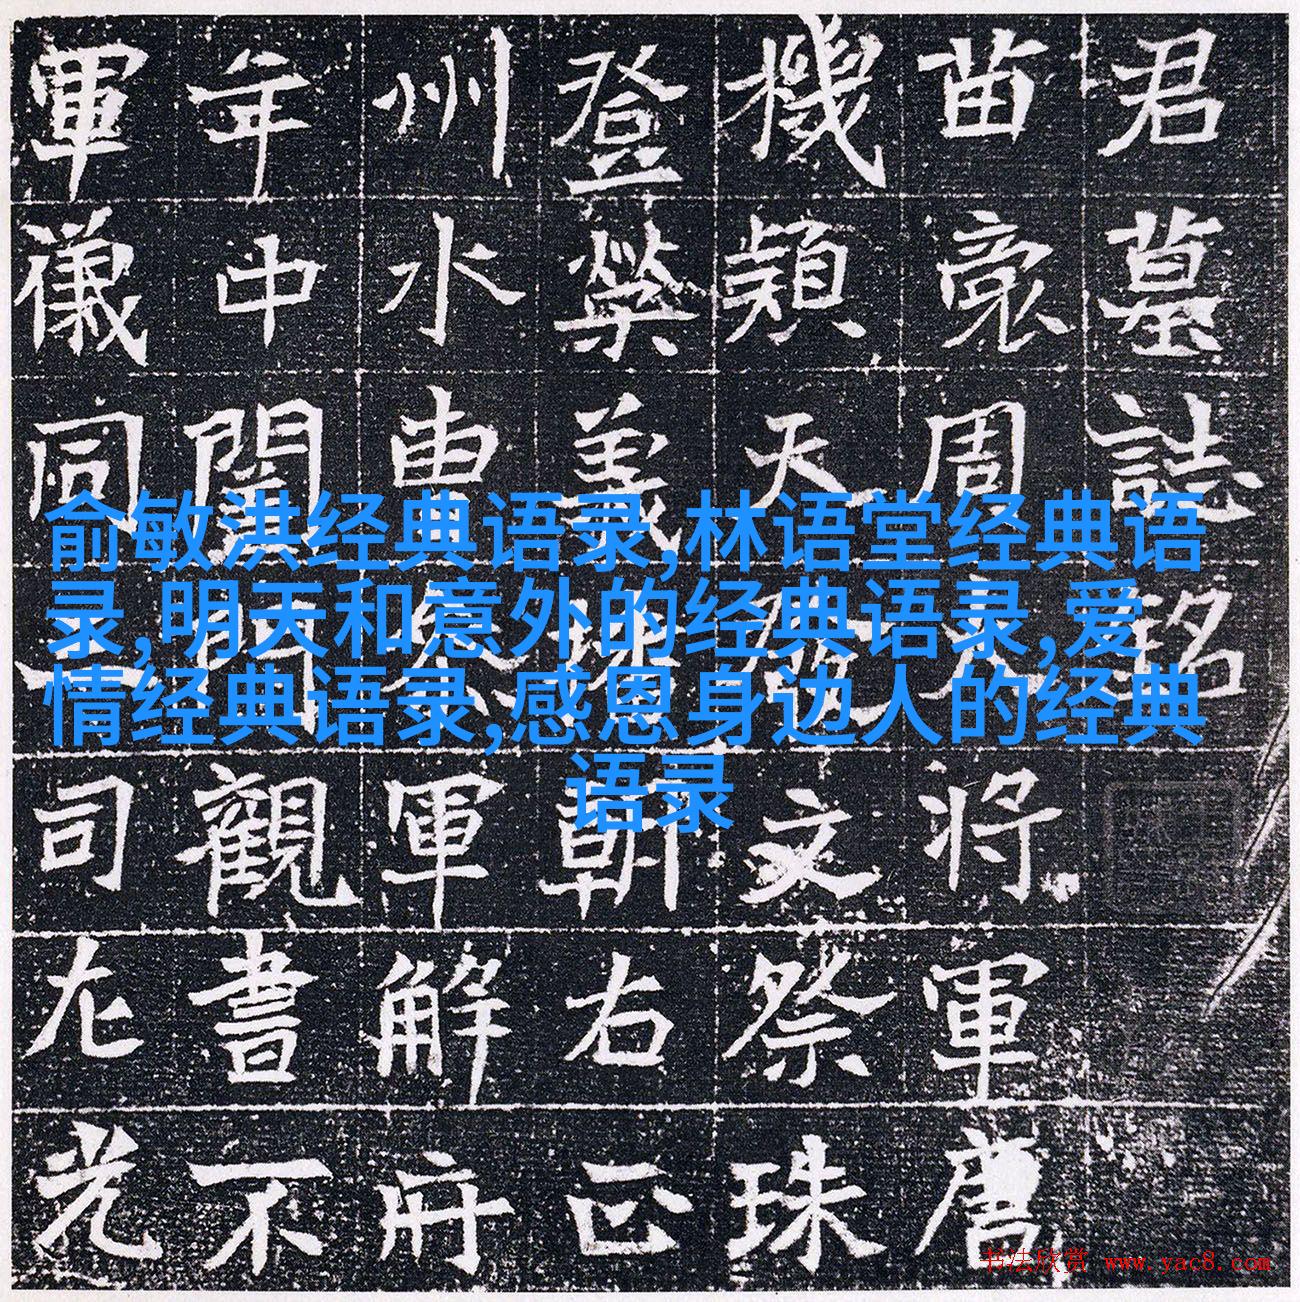 君墓誌銘
苗裔周文将軍唐
機穎天文祭珠
登榮義朝右正
州水曹軍解府
年中開府觀書不
軍儀同三司左光
俞敏洪经典语录,林语堂经典语
录,明天和意外的经典语录,爱
情经典语录,感恩身边人的经典
语录
书法欣赏 www.yac8.com